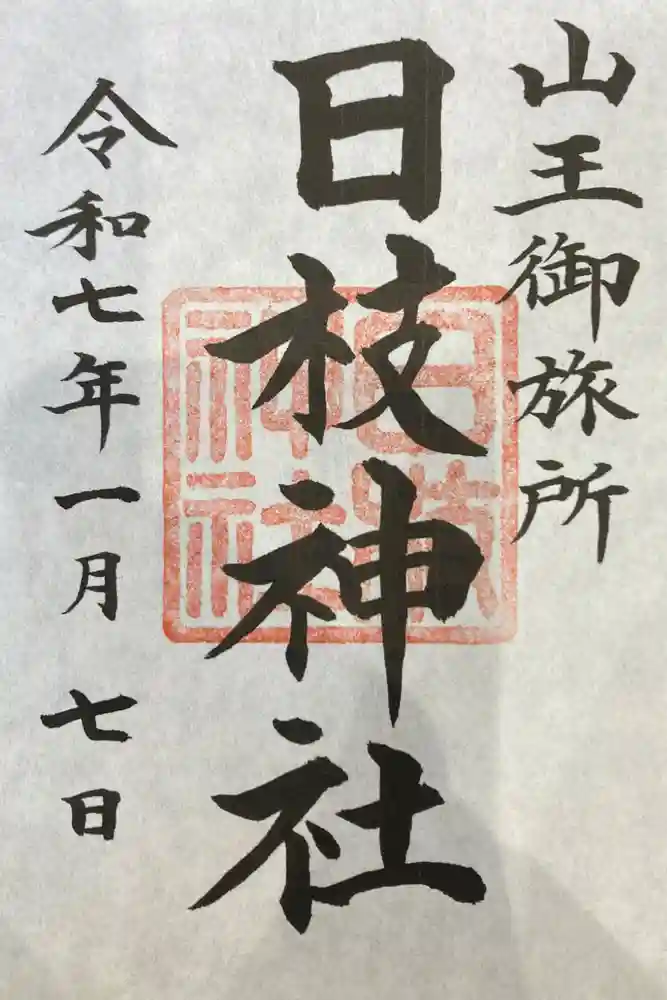 山王御旅所
日枝神社
日枝神社
令和七年一月七日